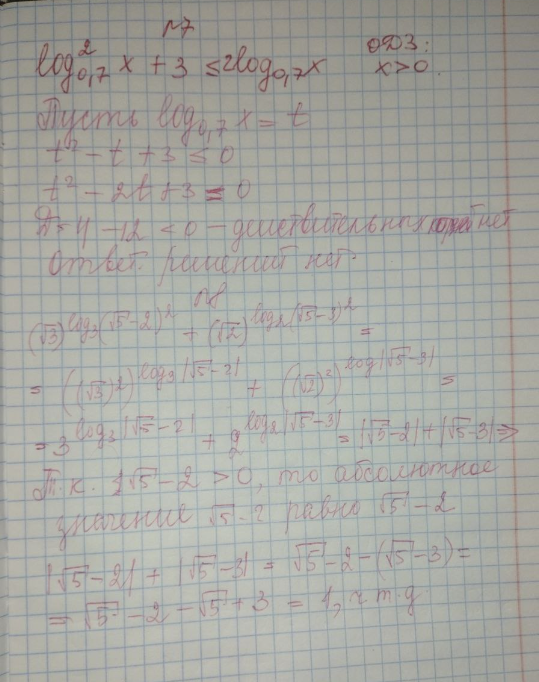 №7
log²₀,₇ x + 3 ≤ 2log₀,₇ x ОДЗ: x>0.
Пусть log₀,₇ x = t
t² - t + 3 ≤ 0
t² - 2t + 3 = 0
Д = 4 - 12 < 0 - действительных нет
Ответ: решений нет.
№8
(√3)^log₃(√5-2)² + (√2)^log₂(√5-3)² =
= ((√3)²)^log₃|√5-2| + ((√2)²)^log|√5-3| =
= 3^log₃|√5-2| + 2^log₂|√5-3| = |√5-2| + |√5-3| ⇒
Т.к. √5 - 2 > 0, то абсолютное
значение √5 - 2 равно √5 - 2
|√5-2| + |√5-3| = √5 - 2 - (√5-3) =
= √5 - 2 - √5 + 3 = 1, ч.т.д